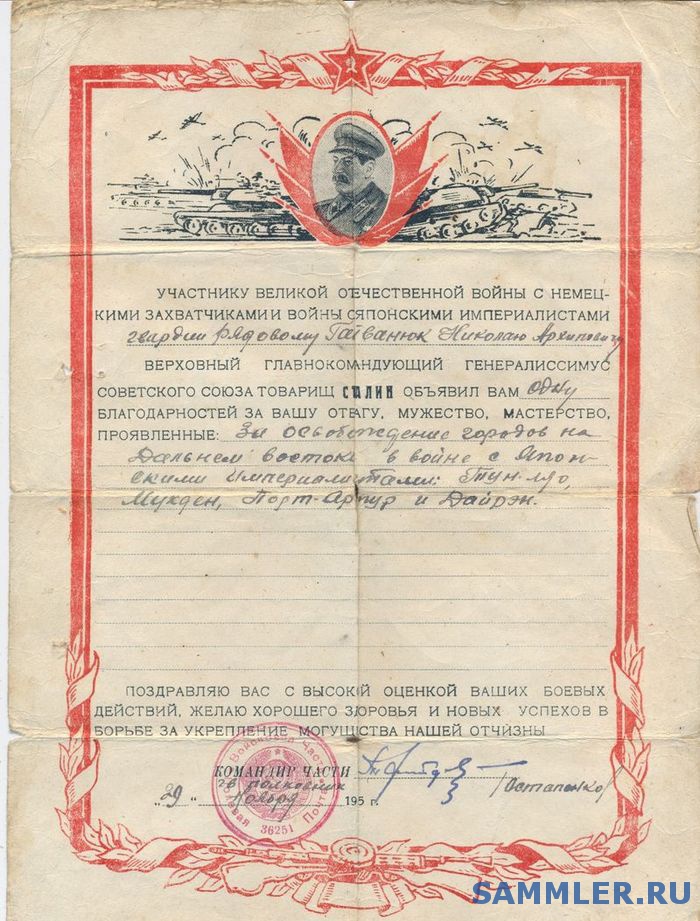 УЧАСТНИКУ ВЕЛИКОЙ ОТЕЧЕСТВЕННОЙ ВОЙНЫ С НЕМЕЦ-
КИМИ ЗАХВАТЧИКАМИ И ВОЙНЫ С ЯПОНСКИМИ ИМПЕРИАЛИСТАМИ
гвардии рядовому Гайванюк Николаю Архиповичу
ВЕРХОВНЫЙ ГЛАВНОКОМАНДУЮЩИЙ ГЕНЕРАЛИССИМУС
СОВЕТСКОГО СОЮЗА ТОВАРИЩ СТАЛИН ОБЪЯВИЛ ВАМ одну
БЛАГОДАРНОСТЕЙ ЗА ВАШУ ОТВАГУ, МУЖЕСТВО, МАСТЕРСТВО,
ПРОЯВЛЕННЫЕ: За освобождение городов на
Дальнем востоке в войне с Япон-
скими Империалистами: Тун-ляо,
Мукден, Порт-Артур и Дайрэн.
ПОЗДРАВЛЯЮ ВАС С ВЫСОКОЙ ОЦЕНКОЙ ВАШИХ БОЕВЫХ
ДЕЙСТВИЙ, ЖЕЛАЮ ХОРОШЕГО ЗДОРОВЬЯ И НОВЫХ УСПЕХОВ В
БОРЬБЕ ЗА УКРЕПЛЕНИЕ МОГУЩЕСТВА НАШЕЙ ОТЧИЗНЫ
КОМАНДИР ЧАСТИ
гв полковник
(Остапенко)
"29" ноября 195 г.
Войсковая Часть
Полевая Почта
36251
SAMMLER.RU